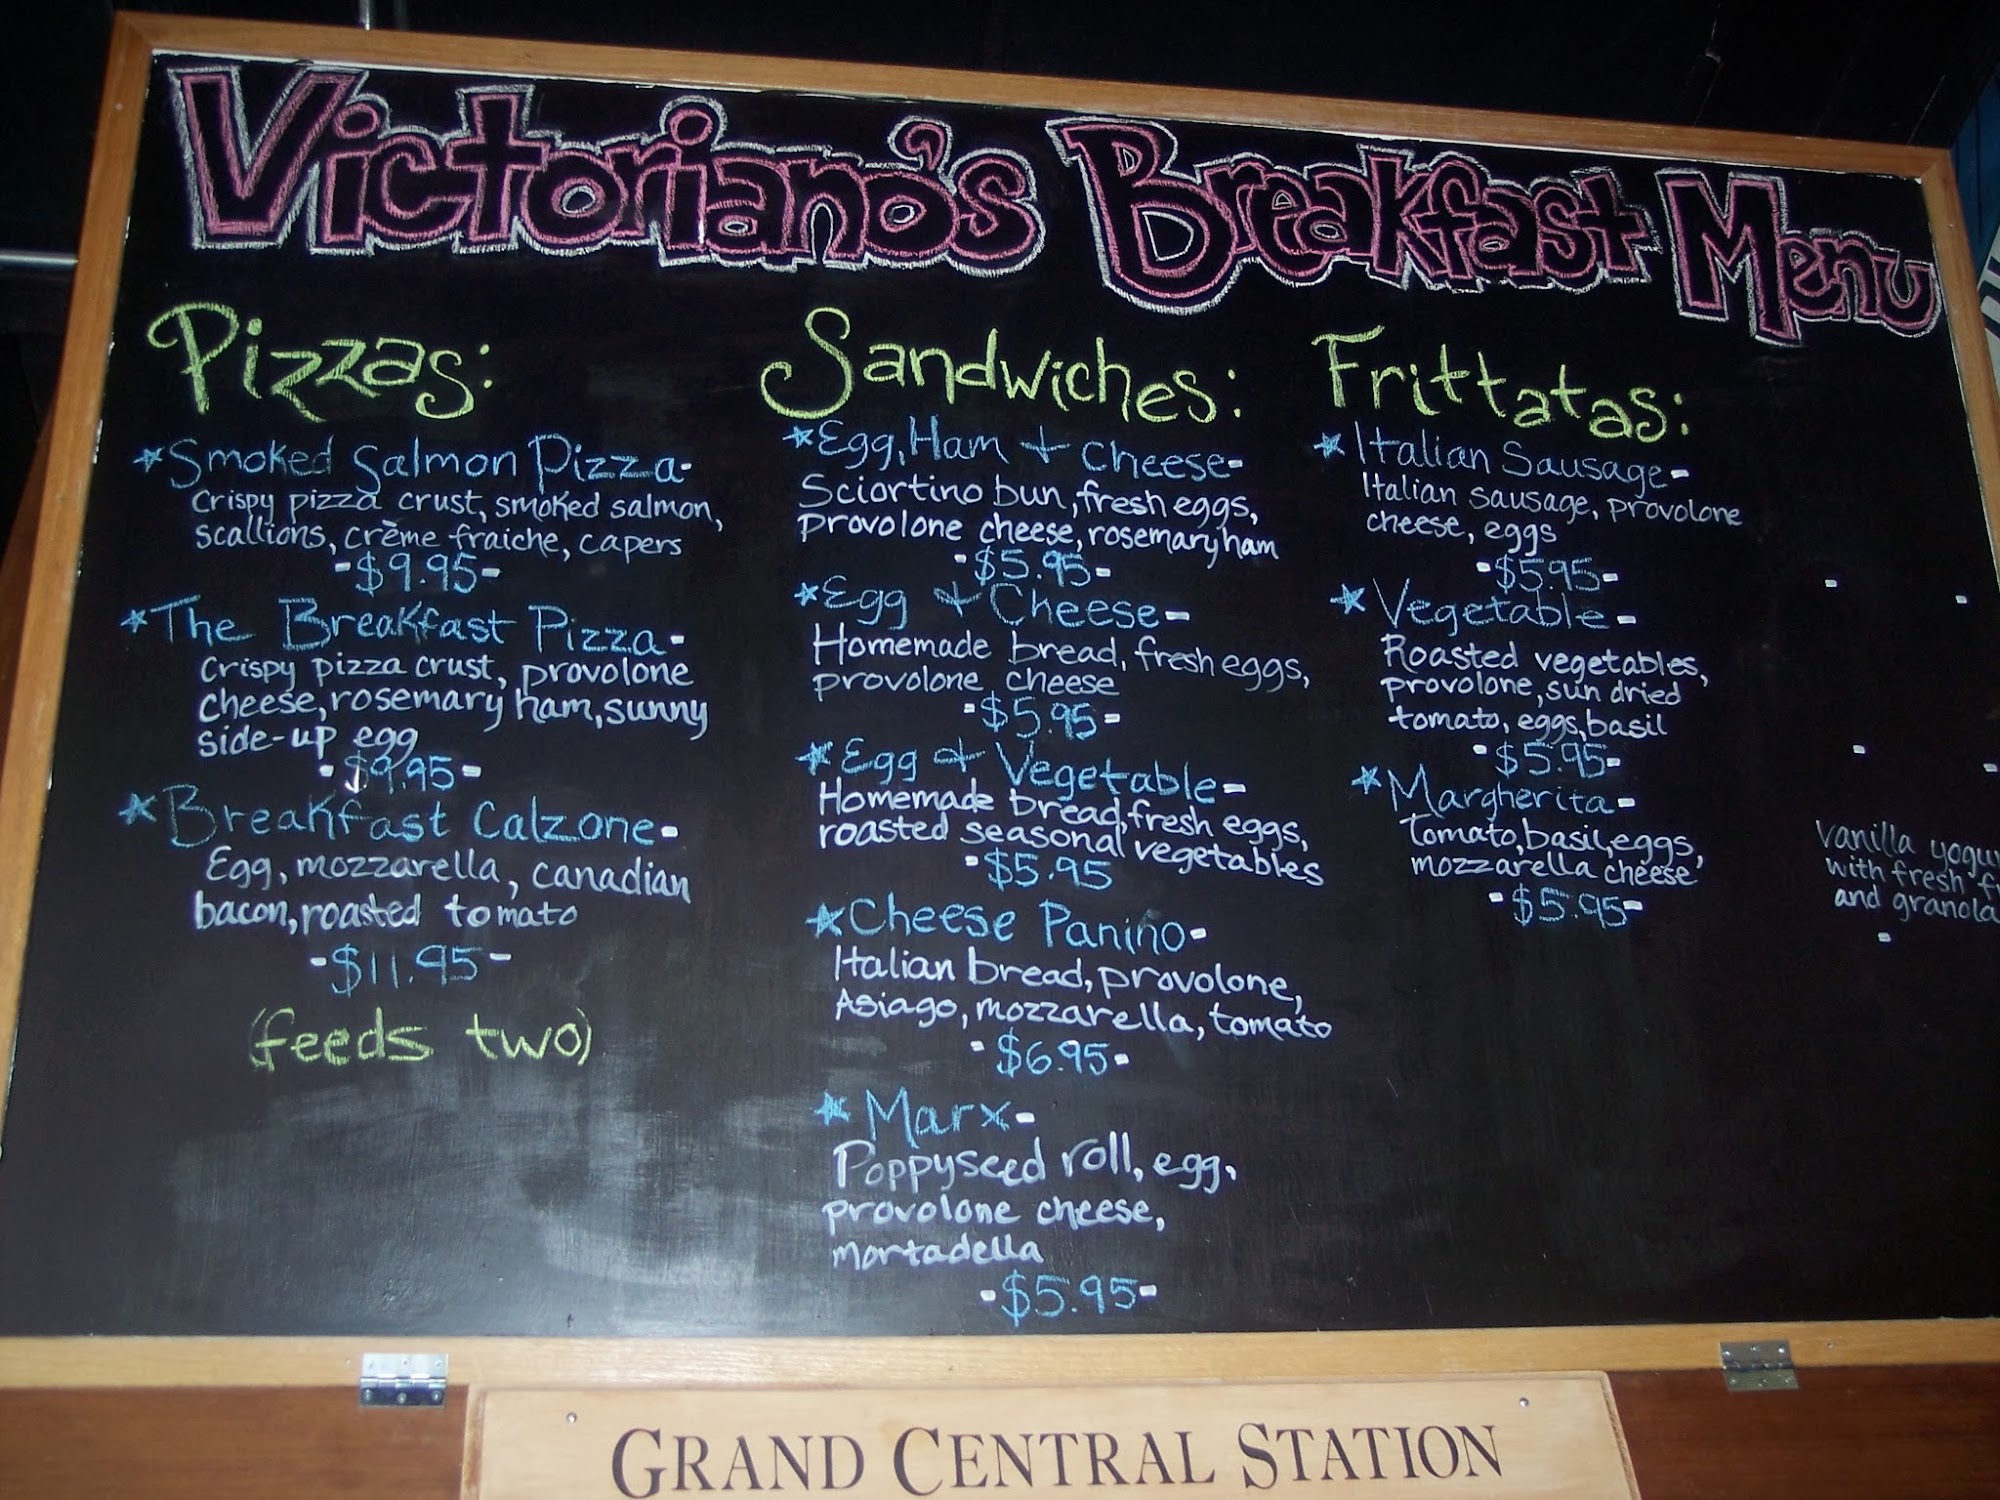 Victoriano's Breakfast Menu
Pizzas:
Smoked Salmon Pizza-
Crispy pizza crust, smoked salmon,
scallions, crème fraiche, capers
-$9.95-
The Breakfast Pizza-
Crispy pizza crust, provolone
cheese, rosemary ham, sunny
side-up egg
-$9.95-
Breakfast Calzone-
Egg, mozzarella, canadian
bacon, roasted tomato
-$11.95-
(feeds two)
Sandwiches:
Egg, Ham + Cheese-
Sciortino bun, fresh eggs,
provolone cheese, rosemary ham
-$5.95-
Egg + Cheese-
Homemade bread, fresh eggs,
provolone cheese
-$5.95-
Egg + Vegetable-
Homemade bread, fresh eggs,
roasted seasonal vegetables
-$5.95
Cheese Panino-
Italian bread, provolone,
Asiago, mozzarella, tomato
-$6.95-
Marx-
Poppyseed roll, egg,
provolone cheese,
mortadella
-$5.95-
Frittatas:
Italian Sausage-
Italian sausage, provolone
cheese, eggs
-$5.95-
Vegetable-
Roasted vegetables,
provolone, sun dried
tomato, eggs, basil
-$5.95-
Margherita-
Tomato, basil, eggs,
mozzarella cheese
-$5.95-
vanilla yogu
with fresh f
and granola
GRAND CENTRAL STATION